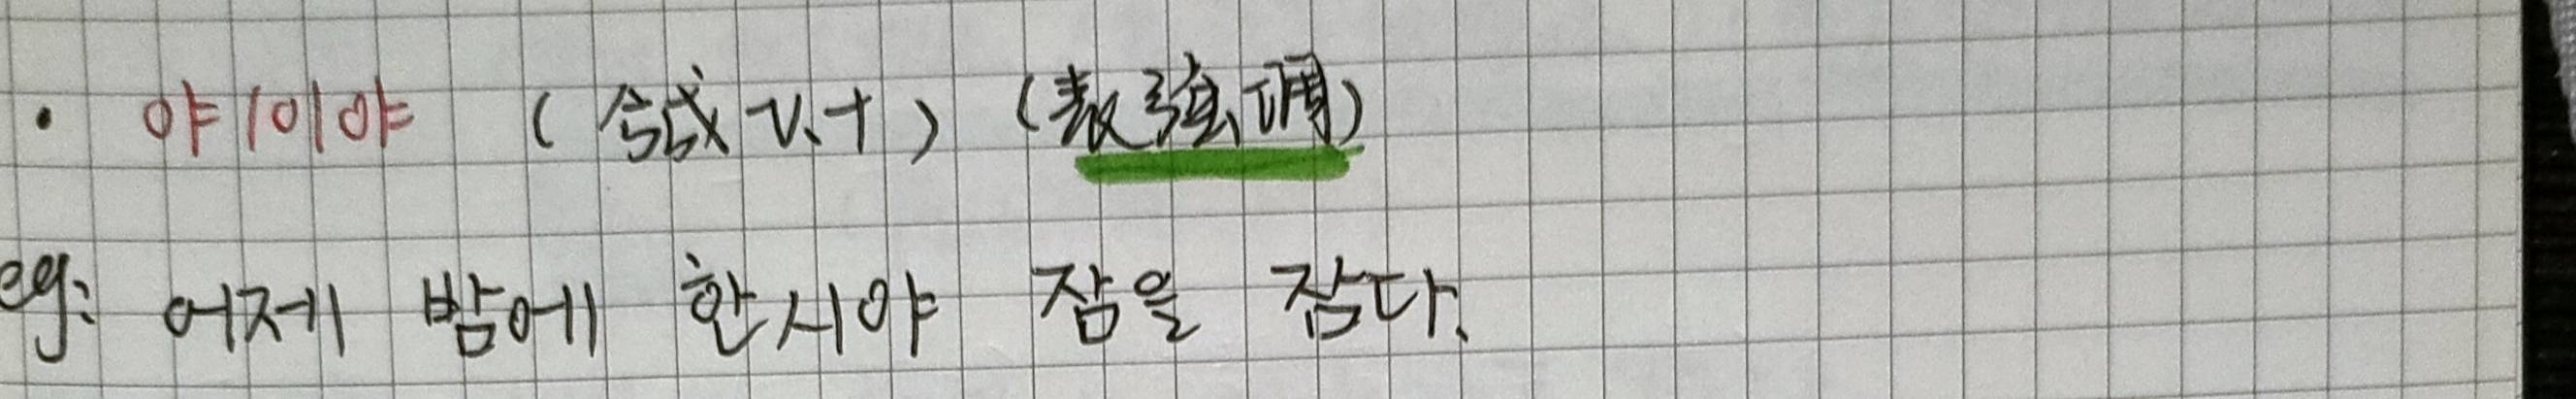 · 야/이야 (n或v.+) (表强调)
eg: 어제 밤에 한시야 잠을 잠다.